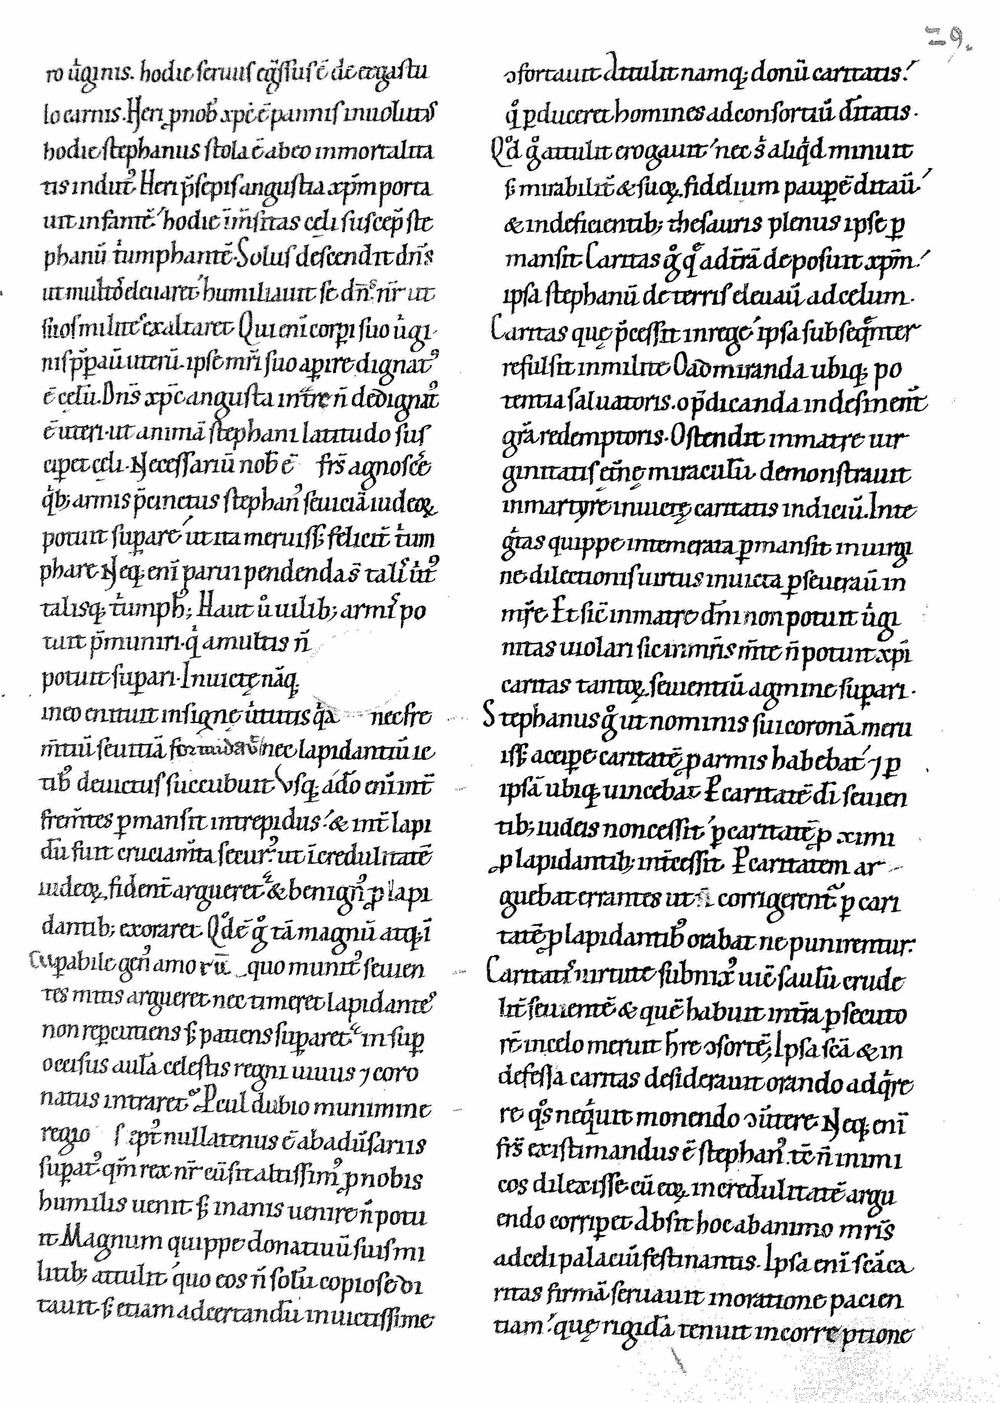 29.
ro ũginis. hodie seruus eg̃ssus ẽ de ergastu
lo carnis. Heri ꝓ nob̾ xp̃c ẽ pannis inuolutus
hodie stephanus stola ẽ ab eo inmortalita
tis indut᷒. Heri p̃sepis angustia xp̃m porta
uit infantẽ. hodie im̃sitas celi suscep̃ ste
phanũ t̾umphantẽ. Solus descendit dñs
ut multos eleuaret. humiliauit se dñs nr̃ ut
suos milites exaltaret. Qui eni corpi suo ũgi
nis p̃parauit uterũ. ipse mr̃i suo aperire dignat᷒
ẽ celũ. Dñs xp̃c angusta intrare ñ dedignat᷒
ẽ uteri. ut animã stephani latitudo sus
ciperet celi. Necessariũ nob̾ ẽ fr̃s agnoscẽ
qͥb; armis p̃cinctus stephan᷒ seuiciã iudeoꝝ
potuit supare ut ita meruiss& felicit̃ t̾um
phare. Neq; eni parui pendenda s̃ talis ũt᷒
talisq; t̾umph᷒. Haut ů uilib; armis po
tuit p̃muniri. qͥ a multis ñ
potuit supari. Inuictę nãq;
in eo enituit insigne ũtutis qͥa nec fre
m̃tiũ seuitiã formidauit nec lapidantiũ ic
tib᷒ deuictus succubuit. Usq; adeo eni int̃
frem̃tes permansit intrepidus. & int̃ lapi
dũ fuit cruciam̃ta secur᷒. ut incredulitatẽ
iudeoꝝ fident̃ argueret & benign᷒ ꝓ lapi
dantib; exoraret. Qͥd ẽ g̊ tã magnũ atq; i
cupabile gen᷒ amorũ quo munit᷒ seuien
tes mitis argueret nec timeret lapidantes
non repcutiens s; patiens supar&. in sup
occisus aulã celestis regni uiuus ⁊ coro
natus intraret. Pcul dubio munimine
regio sept᷒ nullatenus ẽ ab adũsariis
supat᷒. qm̃ rex nr̃ cũ sit altissim᷒ ꝓ nobis
humilis uenit s; inanis uenire ñ potu
it. Magnum quippe donatiuũ suis mi
litib; attulit quo eos ñ solũ copiose di
tauit. s; etiam ad certandũ inuictissime
ɔfortauit. Attulit namq; donũ caritatis.
qͦ perduceret homines ad consortiũ diũtatis.
Qͦd g̊ attulit erogauit nec s̾ aliqͥd minuit
s; mirabilit̃ & suoꝝ fidelium paupẽ ditauĩ
& indeficientib; thesauris plenus ipse per
mansit. Caritas g̊ qͤ ad t̃rã deposuit xp̃m.
ipsa stephanũ de terris eleuauĩ ad celum.
Caritas que p̃cessit in rege ipsa subseqͤnter
refulsit in milite. O admiranda ubiq; po
tentia saluatoris. o p̃dicanda indesinent̃
gr̃a redemptoris. Ostendit in matre uir
ginitatis ęt̃nę miraculũ demonstrauit
in martyre inuictę caritatis indiciũ. Inte
gͥtas quippe intemerata permansit in uirgi
ne. dilectionis uirtus inuicta perseuerauĩ in
mr̃e. Et sic in matre dñi non potuit ũgi
nitas uiolari sic in mr̃is m̃te ñ potuit xp̃i
caritas tantoꝝ seuientiũ agmine supari.
Stephanus g̊ ut nominis sui coronã meru
iss& accipe caritatẽ ꝓ armis habebat ⁊ per
ipsã ubiq; uincebat. Per caritatẽ di seuien
tib; iudeis non cessit. per caritatẽ ꝓximi
ꝓ lapidantib; int̃cessit. Per caritatem ar
guebat errantes ut corrigerent̃. per cari
tatẽ ꝓ lapidantib᷒ orabat ne punirentur.
Caritatis uirtute subnix᷒ uic̃ saulũ crude
lit̃ seuientẽ & quẽ habuit in t̃ra persecuto
rẽ in celo meruit h̃re ɔsortẽ. Ipsa sc̃a & in
defessa caritas desiderauit orando adqͥre
re qͦs nequit monendo ɔũtere. Neq; eni
fr̃s existimandus ẽ stephan᷒ tc̃ ñ inimi
cos dilexisse cũ eoꝝ incredulitatẽ argu
endo corriper&. Absit hoc ab animo mr̃is
ad celi palaciũ festinantis. Ipsa eni sc̃a ca
ritas firmã seruauit in oratione pacien
tiam. que rigida tenuit in correptione